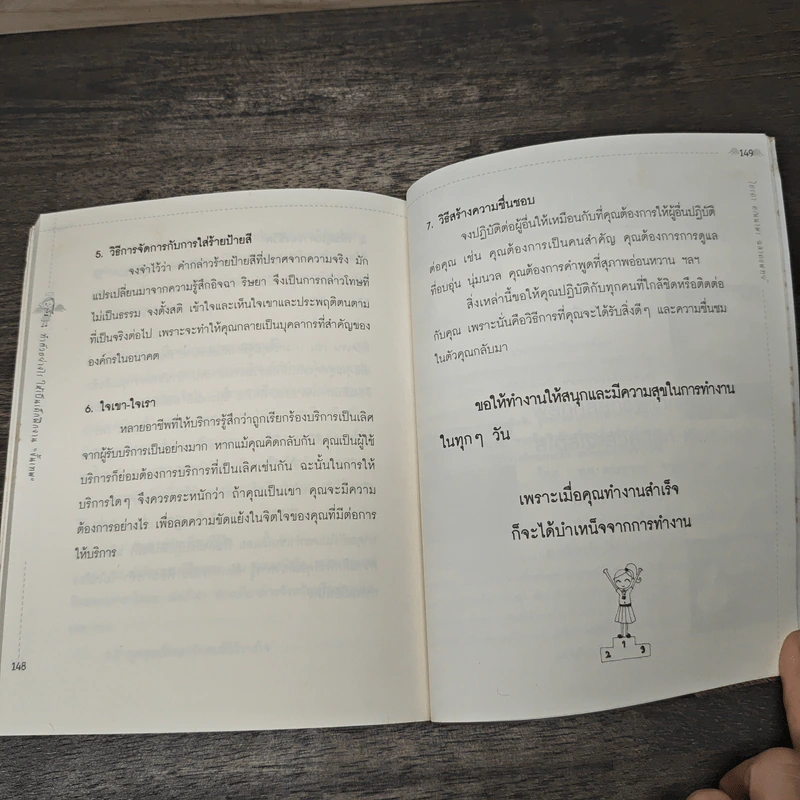 5. วิธีการจัดการกับการใส่ร้ายป้ายสี
จงจำไว้ว่า คำกล่าวร้ายป้ายสีที่ปราศจากความจริง มัก
แปรเปลี่ยนมาจากความรู้สึกอิจฉา ริษยา จึงเป็นการกล่าวโทษที่
ไม่เป็นธรรม จงตั้งสติ เข้าใจและเห็นใจเขาและประพฤติตนตาม
ที่เป็นจริงต่อไป เพราะจะทำให้คุณกลายเป็นบุคลากรที่สำคัญของ
องค์กรในอนาคต
6. ใจเขา-ใจเรา
หลายอาชีพที่ให้บริการรู้สึกว่าถูกเรียกร้องบริการเป็นเลิศ
จากผู้รับบริการเป็นอย่างมาก หากแม้คุณคิดกลับกัน คุณเป็นผู้ใช้
บริการก็ย่อมต้องการบริการที่เป็นเลิศเช่นกัน ฉะนั้นในการให้
บริการใดๆ จึงควรตระหนักว่า ถ้าคุณเป็นเขา คุณจะมีความ
ต้องการอย่างไร เพื่อลดความขัดแย้งในจิตใจของคุณที่มีต่อการ
ให้บริการ
148
149
7. วิธีสร้างความชื่นชอบ
จงปฏิบัติต่อผู้อื่นให้เหมือนกับที่คุณต้องการให้ผู้อื่นปฏิบัติ
ต่อคุณ เช่น คุณต้องการเป็นคนสำคัญ คุณต้องการการดูแล
ที่อบอุ่น นุ่มนวล คุณต้องการคำพูดที่สุภาพอ่อนหวาน ฯลฯ
สิ่งเหล่านี้ขอให้คุณปฏิบัติกับทุกคนที่ใกล้ชิดหรือติดต่อ
กับคุณ เพราะนั่นคือวิธีการที่คุณจะได้รับสิ่งดีๆ และความชื่นชม
ในตัวคุณกลับมา
ขอให้ทำงานให้สนุกและมีความสุขในการทำงาน
ในทุกๆ วัน
เพราะเมื่อคุณทำงานสำเร็จ
ก็จะได้บำเหน็จจากการทำงาน
2 1 3